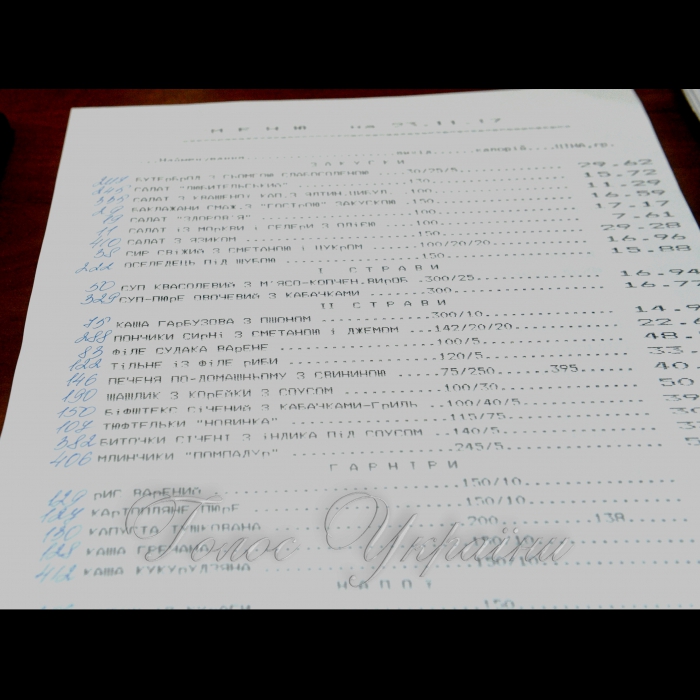 М Е Н Ю на 23.11.17
Найменування вихід калорій ЦІНА,гр.
З А К У С К И
БУТЕРБРОД З ..... 30/25/5 ..... 29.62
САЛАТ "ЛЮБИТЕЛЬСЬКИЙ" ..... 150 ..... 15.72
САЛАТ З КВАШЕНОЇ КАП.З ..... 100 ..... 11.29
БАКЛАЖАНИ СМАЖ.З "ГОСТРОЮ" ЗАКУСКОЮ .150 ..... 16.59
САЛАТ "ЗДОРОВ'Я" ..... 100 ..... 17.17
САЛАТ ІЗ МОРКВИ І СЕЛЕРИ З ОЛІЄЮ ..... 100 ..... 7.61
410 САЛАТ З ЯЗИКОМ ..... 150 ..... 29.28
38 СИР СВІЖИЙ З СМЕТАНОЮ І ЦУКРОМ ..... 100/20/20 ..... 16.96
222 ОСЕЛЕДЕЦЬ ПІД ШУБОЮ ..... 150 ..... 15.88
І С Т Р А В И
50 СУП КВАСОЛЕВИЙ З М'ЯСО-КОПЧЕН.ВИРОБ .300/25 ..... 16.94
329 СУП-ПЮРЕ ОВОЧЕВИЙ З КАБАЧКАМИ ..... 300 ..... 16.77
ІІ С Т Р А В И
15 КАША ГАРБУЗОВА З ПШОНОМ ..... 300/10 ..... 14.9
288 ПОНЧИКИ СИРНІ З СМЕТАНОЮ І ДЖЕМОМ ..... 142/20/20 ..... 22.
83 ФІЛЕ СУДАКА ВАРЕНЕ ..... 100/5 ..... 48.
122 ТІЛЬНЕ ІЗ ФІЛЕ РИБИ ..... 120/5 ..... 33.
146 ПЕЧЕНЯ ПО-ДОМАШНЬОМУ З СВИНИНОЮ ..... 75/250 ..... 395 ..... 40.
190 ШАШЛИК З КОРЕЙКИ З СОУСОМ ..... 100/30 ..... 50
150 БІФШТЕКС СІЧЕНИЙ З КАБАЧКАМИ-ГРИЛЬ ..100/40/5 ..... 39
108 ТЮФТЕЛЬКИ "НОВИНКА" ..... 115/75 ..... 3
382 БИТОЧКИ СІЧЕНІ З ІНДИКА ПІД СОУСОМ ..140/5 ..... 39
406 МЛИНЧИКИ "ПОМПАДУР" ..... 245/5
Г А Р Н І Р И
129 РИС ВАРЕНИЙ ..... 150/10
127 КАРТОПЛЯНЕ ПЮРЕ ..... 150/10
130 КАПУСТА ТУШКОВАНА ..... 200 ..... 138
128 КАША ГРЕЧАНА
412 КАША КУКУРУДЗЯНА ..... 150/10
Голос України
Н А П О Ї
150